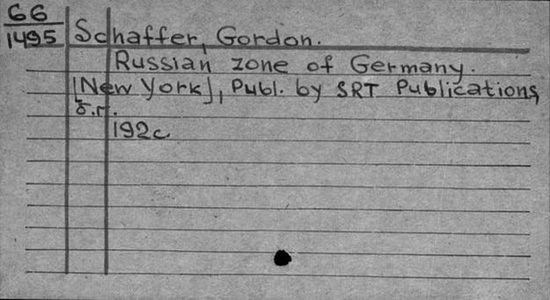 66
1495
Schaffer, Gordon.
Russian zone of Germany.
[New York], Publ. by SRT Publications,
б.г.
192c